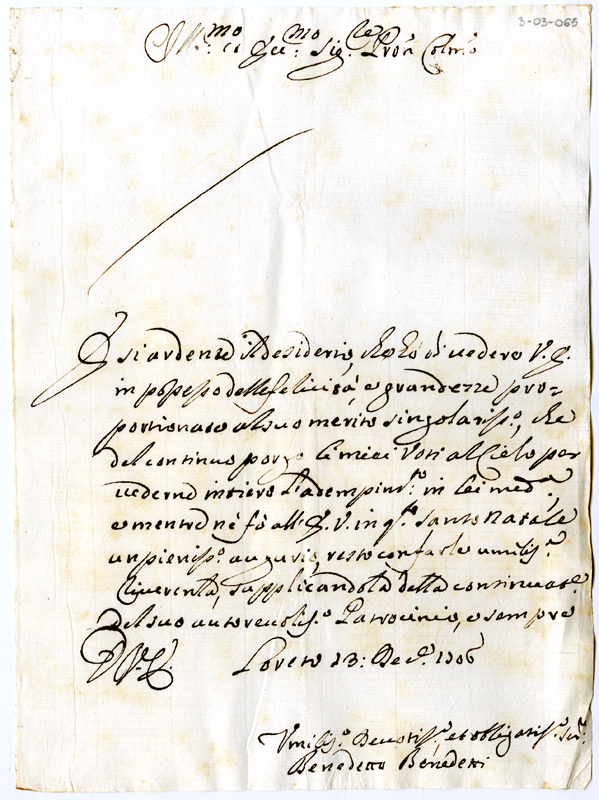 3-03-065
Ill.mo et Ecc.mo Sig.re Pron Colmo
È si ardente il desiderio, che hò di vedere V. E.
in possesso delle felicità e grandezze pro=
portionate al suo merito singolariss.o, che
del continuo porgo li miei Voti al Cielo per
vederne intiero l'adempim.to in lei med.a,
e mentre nè fò all'E. V. in q.to Santo Natale
un pieniss.o augurio, resto con farle umilis.a
riverenza, supplicandola della continuat.e
del suo autorevolis.o Patrocinio, e sempre
D V. E. Loreto 13: Dec.e 1706
Umilis.o Devotiss.o, et obligatiss.o Ser.e
Benedetto Benedetti